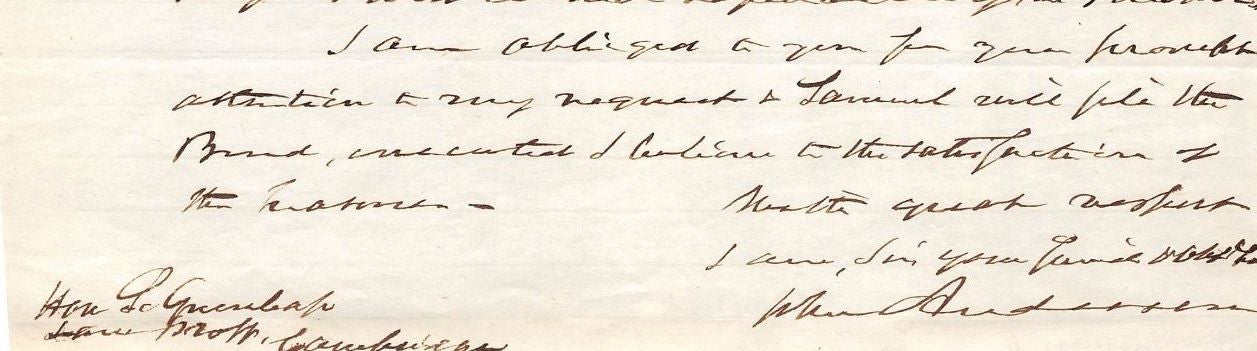 I am obliged to you for your prompt
attention to my request & Samuel will file the
Bond, executed I believe to the satisfaction of
the Treasurer -
With great respect
I am, Sir your friend & Obt
John Anderson
Hon S. Greenleaf
Law Prof. Cambridge